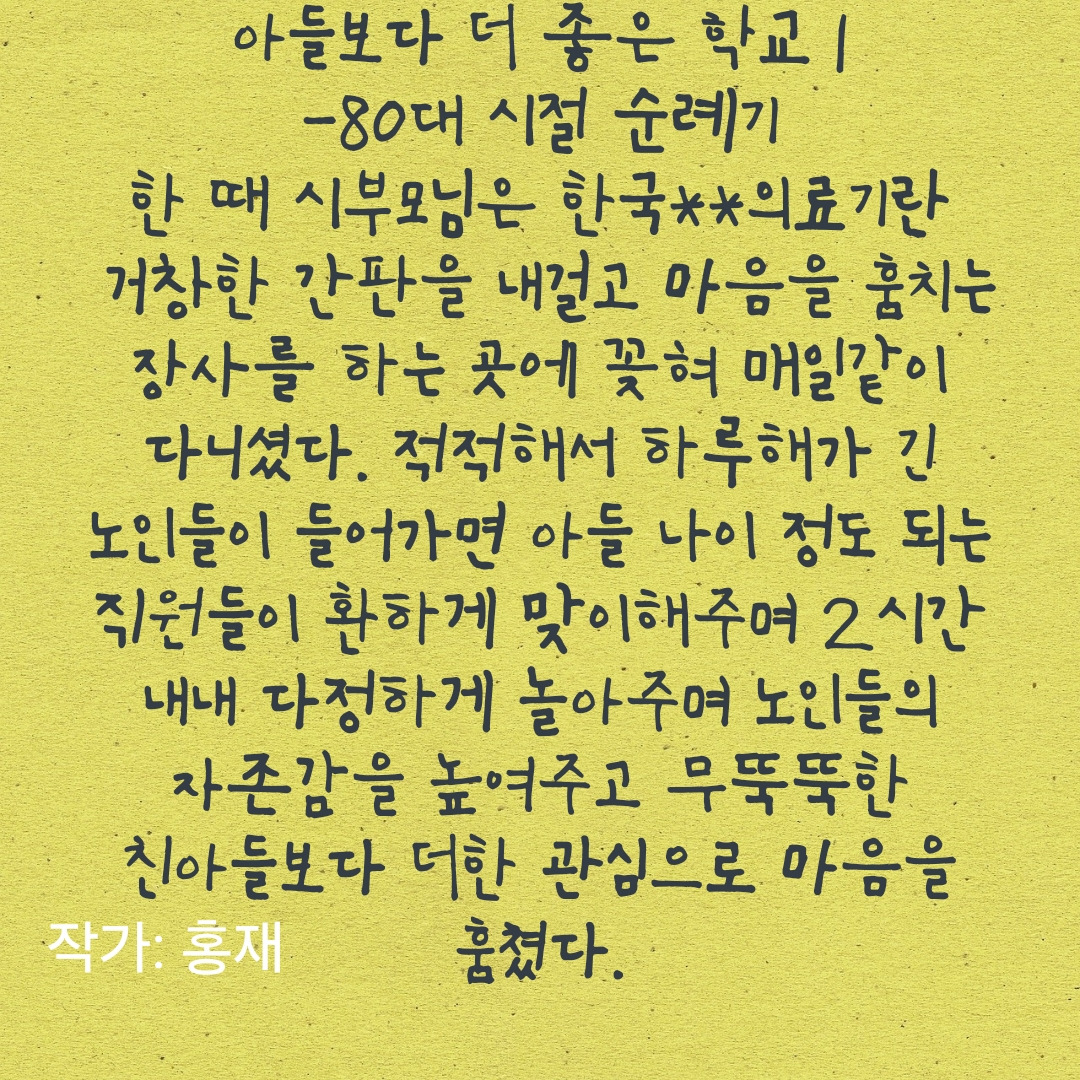 아들보다 더 좋은 학교 1
-80대 시절 순례기
한 때 시부모님은 한국**의료기란
거창한 간판을 내걸고 마음을 훔치는
장사를 하는 곳에 꽂혀 매일같이
다니셨다. 적적해서 하루해가 긴
노인들이 들어가면 아들 나이 정도 되는
직원들이 환하게 맞이해주며 2시간
내내 다정하게 놀아주며 노인들의
자존감을 높여주고 무뚝뚝한
친아들보다 더한 관심으로 마음을
훔쳤다.
작가: 홍재